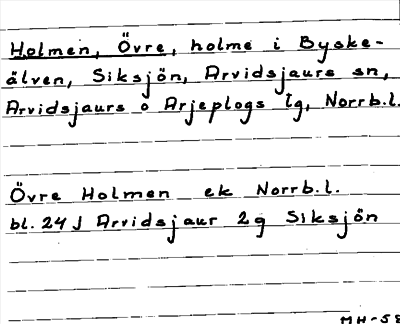 Holmen, Övre, holme i Byske-
älven, Siksjön, Arvidsjaurs sn,
Arvidsjaurs o Arjeplogs tg, Norrb.l.
Övre Holmen ek Norrb.l.
bl. 24 J Arvidsjaur 2 g Siksjön
MH-58